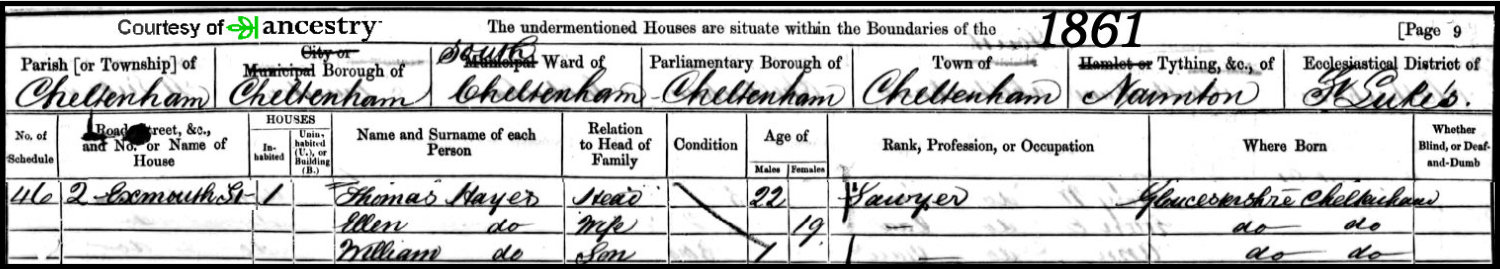 Courtesy of ancestry The undermentioned Houses are situate within the Boundaries of the 1861 [Page 9
Parish [or Township] of City or Municipal Borough of South Municipal Ward of Parliamentary Borough of Town of Hamlet or Tything, &c., of Ecclesiastical District of
Cheltenham Cheltenham Cheltenham Cheltenham Cheltenham Naunton St Luke's.
No. of Schedule Road, Street, &c., and No. or Name of House HOUSES Inhabited Uninhabited (U.), or Building (B.) Name and Surname of each Person Relation to Head of Family Condition Age of Males Females Rank, Profession, or Occupation Where Born Whether Blind, or Deaf-and-Dumb
46 2 Exmouth St 1 Thomas Hayes Head 22 Sawyer Gloucestershire Cheltenham
Ellen do Wife 19 do do
William do Son 1 do do